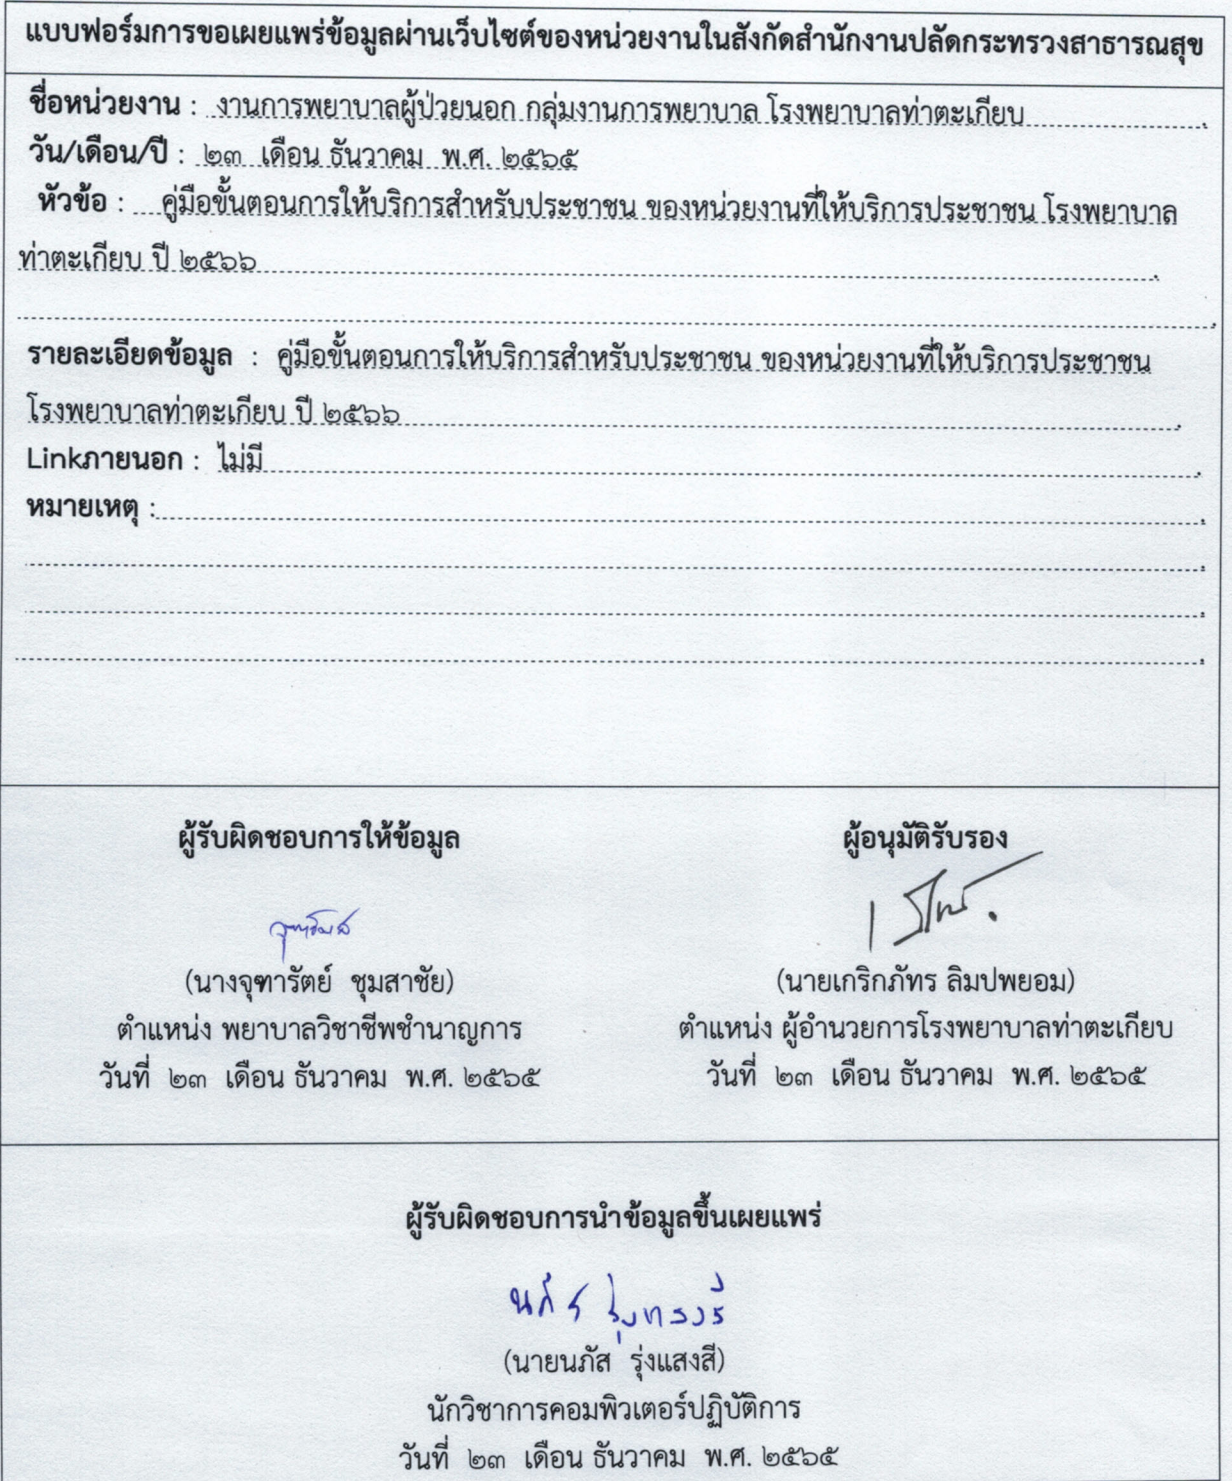 แบบฟอร์มการขอเผยแพร่ข้อมูลผ่านเว็บไซต์ของหน่วยงานในสังกัดสำนักงานปลัดกระทรวงสาธารณสุข
ชื่อหน่วยงาน : งานการพยาบาลผู้ป่วยนอก กลุ่มงานการพยาบาล โรงพยาบาลท่าตะเกียบ
วัน/เดือน/ปี : ๒๓ เดือน ธันวาคม พ.ศ. ๒๕๖๕
หัวข้อ : คู่มือขั้นตอนการให้บริการสำหรับประชาชน ของหน่วยงานที่ให้บริการประชาชน โรงพยาบาล
ท่าตะเกียบ ปี ๒๕๖๖
รายละเอียดข้อมูล : คู่มือขั้นตอนการให้บริการสำหรับประชาชน ของหน่วยงานที่ให้บริการประชาชน
โรงพยาบาลท่าตะเกียบ ปี ๒๕๖๖
Linkภายนอก : ไม่มี
หมายเหตุ :
ผู้รับผิดชอบการให้ข้อมูล
(นางจุฑารัตย์ ชุมสาชัย)
ตำแหน่ง พยาบาลวิชาชีพชำนาญการ
วันที่ ๒๓ เดือน ธันวาคม พ.ศ. ๒๕๖๕
ผู้อนุมัติรับรอง
(นายเกริกภัทร ลิมปพยอม)
ตำแหน่ง ผู้อำนวยการโรงพยาบาลท่าตะเกียบ
วันที่ ๒๓ เดือน ธันวาคม พ.ศ. ๒๕๖๕
ผู้รับผิดชอบการนำข้อมูลขึ้นเผยแพร่
(นายนภัส รุ่งแสงสี)
นักวิชาการคอมพิวเตอร์ปฏิบัติการ
วันที่ ๒๓ เดือน ธันวาคม พ.ศ. ๒๕๖๕